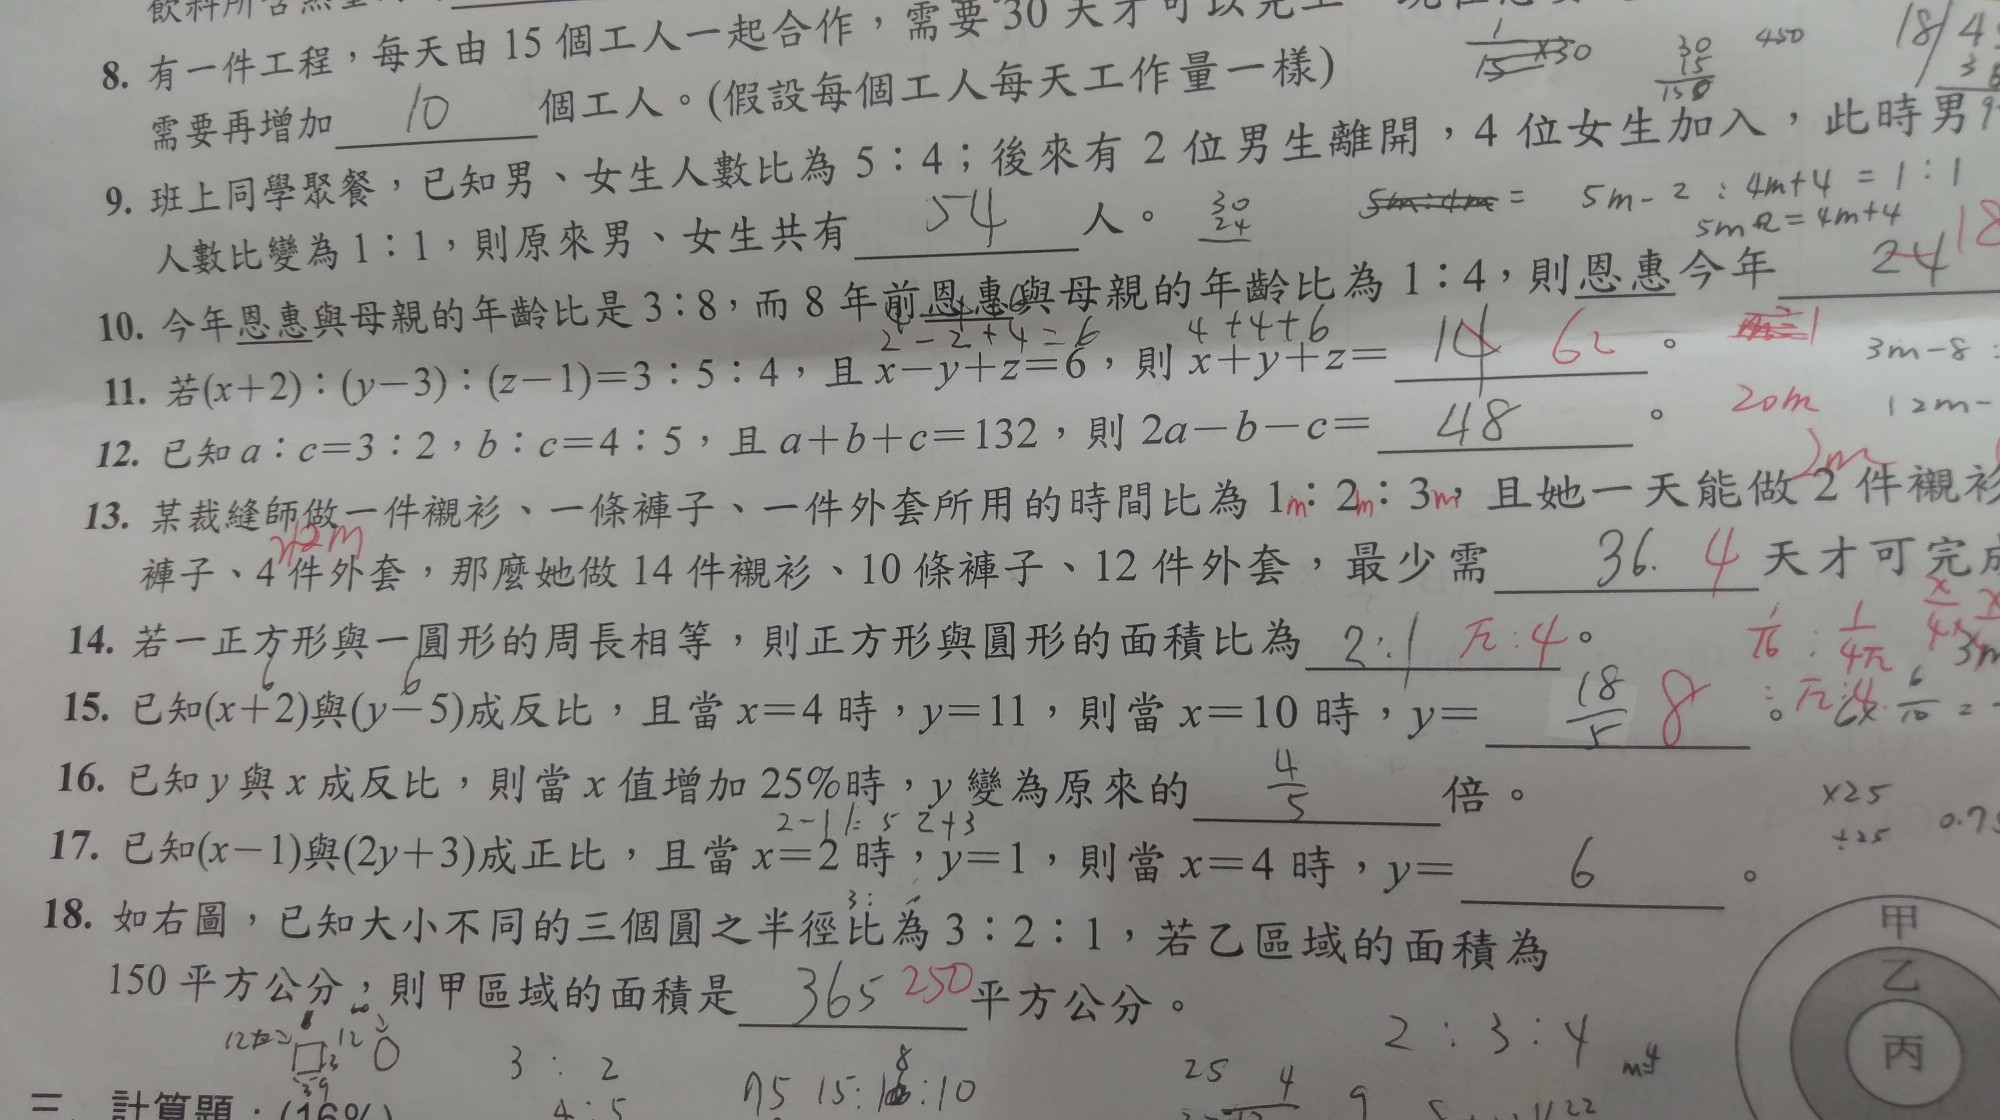 飲料所含熱量
8. 有一件工程，每天由 15 個工人一起合作，需要 30 天才可以完工
需要再增加 10 個工人。(假設每個工人每天工作量一樣)
1/15 ×30
30
15
150
450
9. 班上同學聚餐，已知男、女生人數比為 5：4；後來有 2 位男生離開，4 位女生加入，此時男
人數比變為 1：1，則原來男、女生共有 54 人。
30
24
5m-2 : 4m+4 = 1 : 1
10. 今年恩惠與母親的年齡比是 3：8，而 8 年前恩惠與母親的年齡比為 1：4，則恩惠今年 24 18
2-2+4=6 4+4+6
11. 若(x+2)：(y-3)：(z-1)=3：5：4，且 x-y+z=6，則 x+y+z= 14 62 。
3m-8 :
12. 已知 a：c=3：2，b：c=4：5，且 a+b+c=132，則 2a-b-c= 48 。
20m
12m-
2m
13. 某裁縫師做一件襯衫、一條褲子、一件外套所用的時間比為 1m：2m：3m，且她一天能做 2 件襯衫
12m
褲子、4 件外套，那麼她做 14 件襯衫、10 條褲子、12 件外套，最少需 36. 4 天才可完成
14. 若一正方形與一圓形的周長相等，則正方形與圓形的面積比為 2:1 π:4 。
1/16 : 1/4π
6 6
15. 已知(x+2)與(y-5)成反比，且當 x=4 時，y=11，則當 x=10 時，y= 18/5 8 。
π:4
16. 已知 y 與 x 成反比，則當 x 值增加 25%時，y 變為原來的 4/5 倍。
×25
÷25
2-1 1=5 2+3
17. 已知(x-1)與(2y+3)成正比，且當 x=2 時，y=1，則當 x=4 時，y= 6 。
18. 如右圖，已知大小不同的三個圓之半徑比為 3：2：1，若乙區域的面積為
150 平方公分，則甲區域的面積是 365 250 平方公分。
甲
乙
丙
2 : 3 : 4
3 : 2
4 : 5
15: 8 :10
25
三、計算題：(16%)